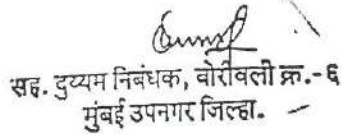 सह. दुय्यम निबंधक, बोरीवली क्र.-६
मुंबई उपनगर जिल्हा.